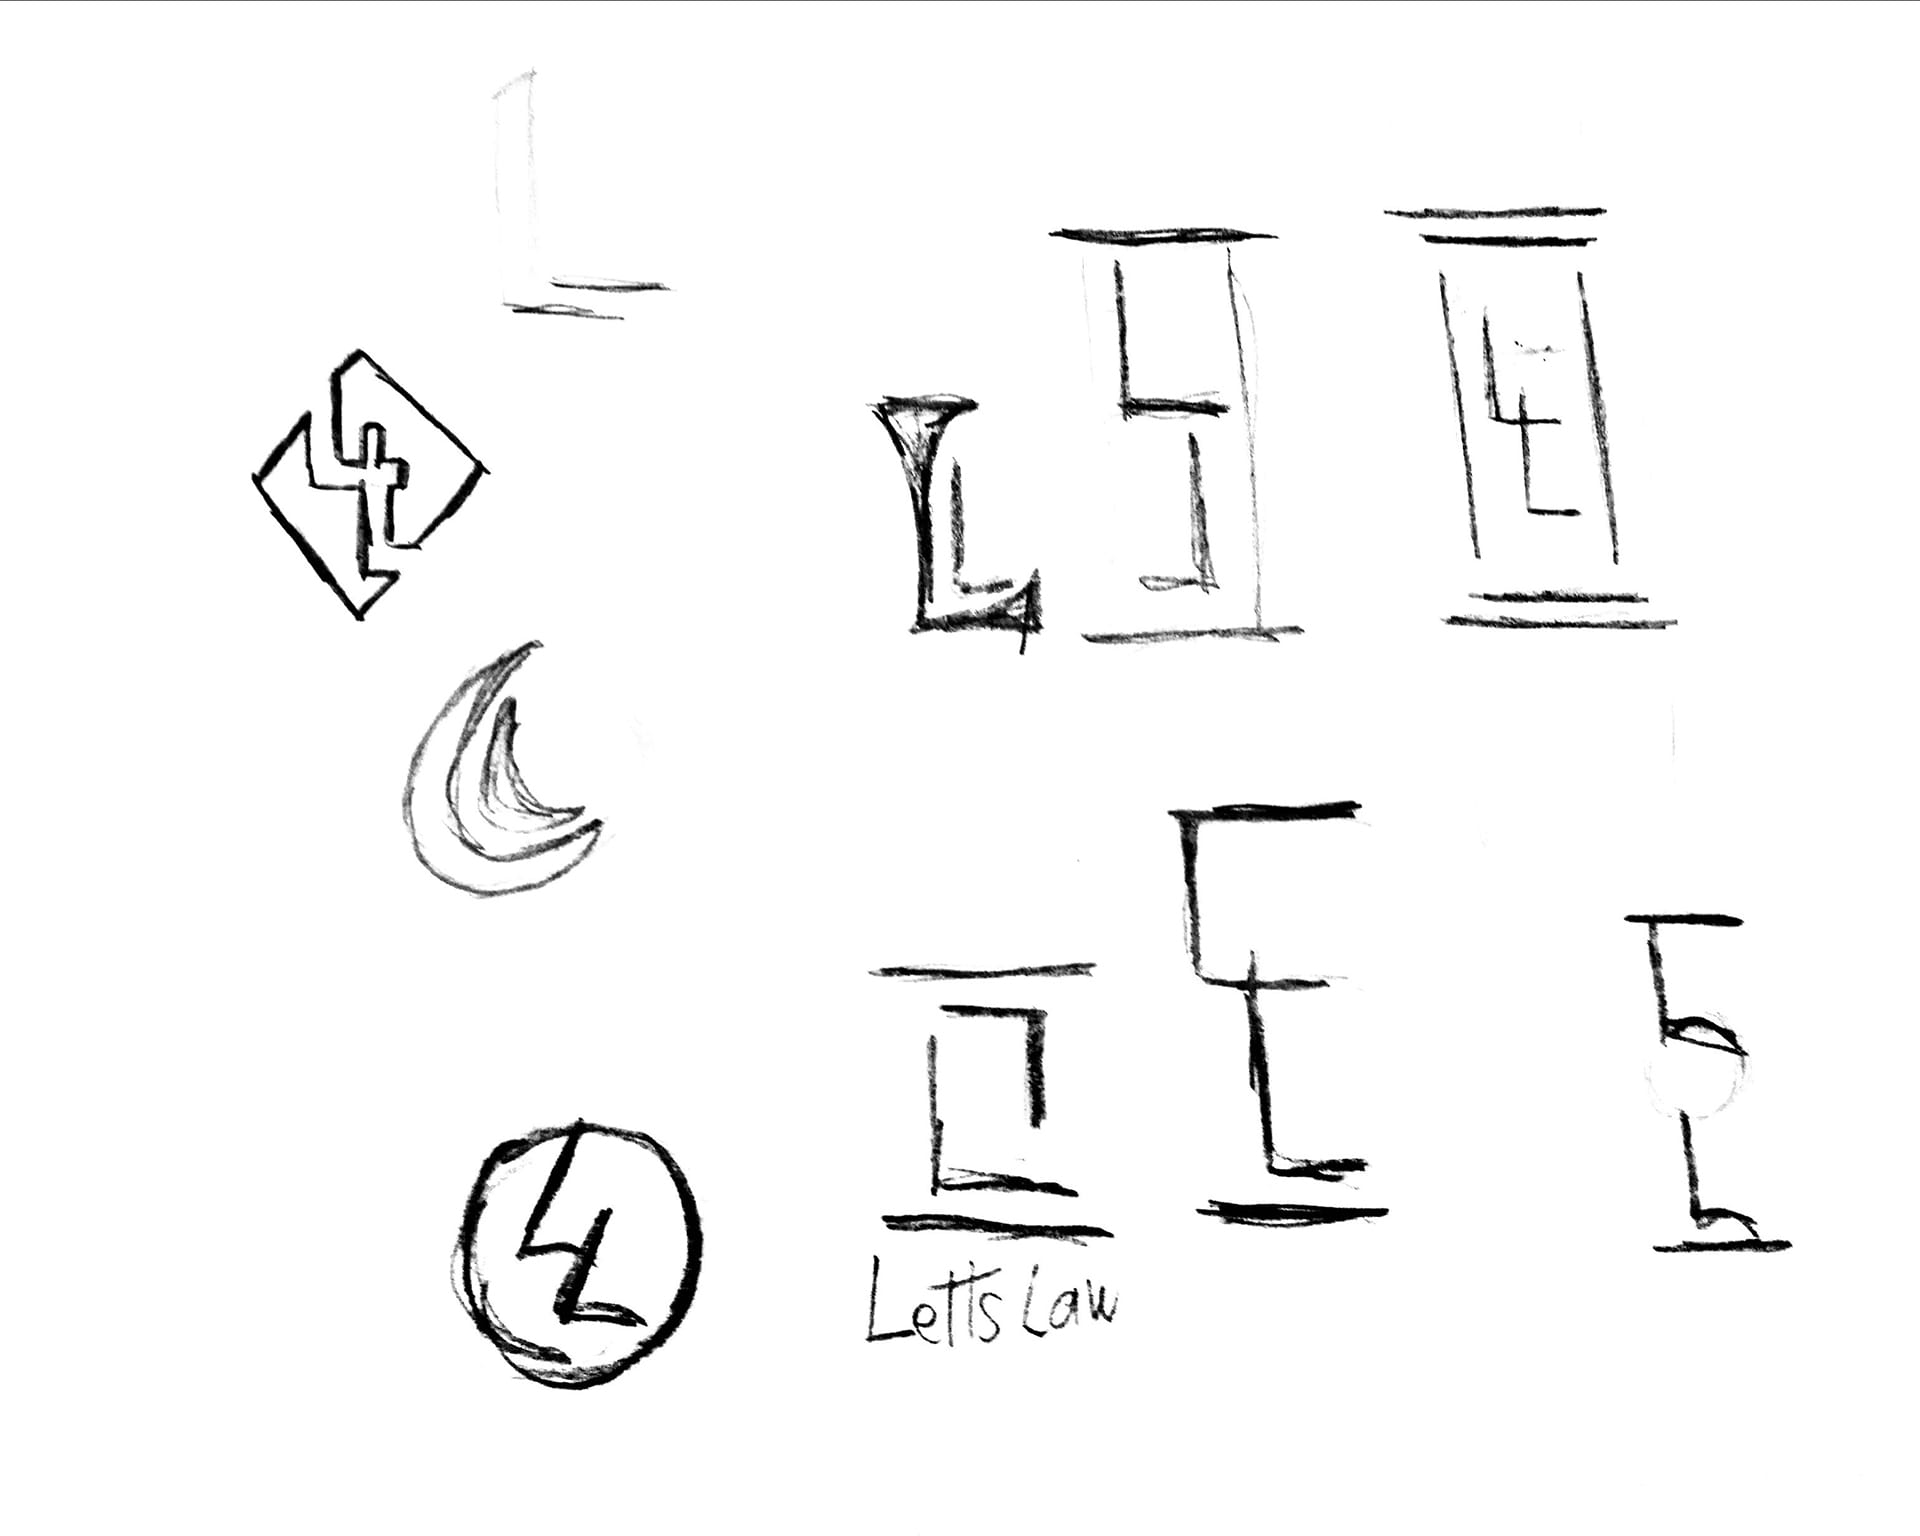 Letts Law